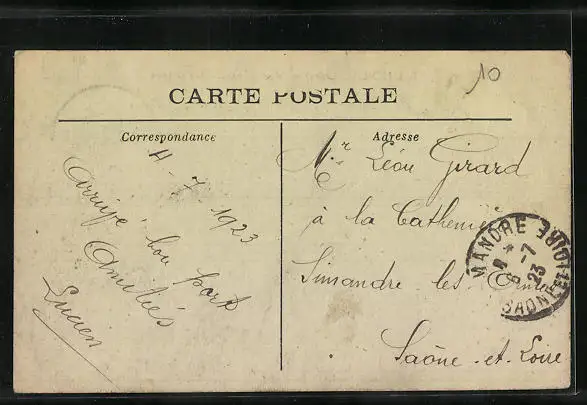 10
CARTE POSTALE
Correspondance
Adresse
4 - 7 1923
Arrivé bon port
Amitiés
Lucien
Mr Léon Girard
à la
Simandre les
Saône-et-Loire
MANDRE
8 -7
23
SAONE-ET-LOIRE